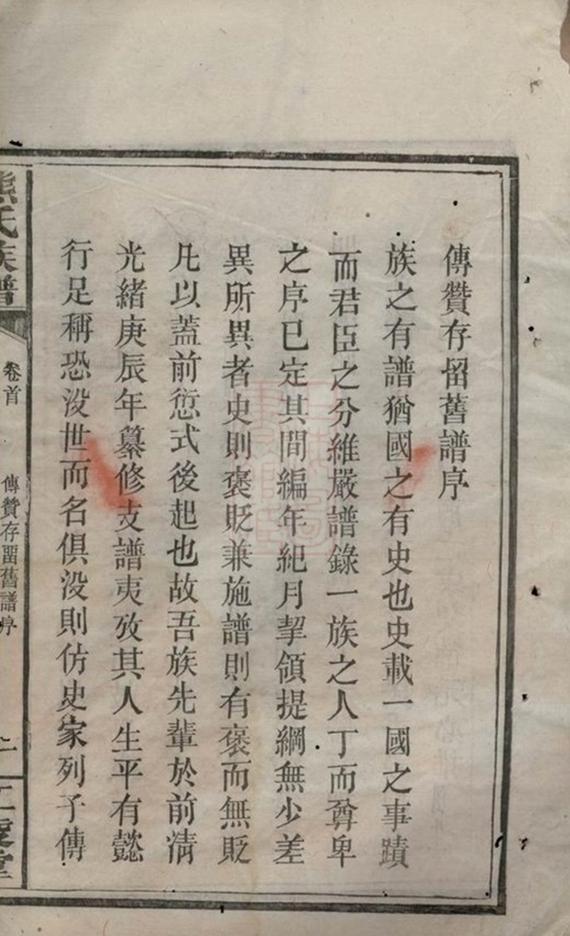 傳贊存留舊譜序
族之有譜猶國之有史也史載一國之事蹟
而君臣之分維嚴譜錄一族之人丁而尊卑
之序已定其間編年紀月挈領提綱無少差
異所異者史則褒貶兼施譜則有褒而無貶
凡以蓋前愆式後起也故吾族先輩於前清
光緒庚辰年纂修支譜夷攷其人生平有懿
行足稱恐沒世而名俱沒則仿史家列子傳
熊氏族譜
卷首
傳贊存留舊譜序